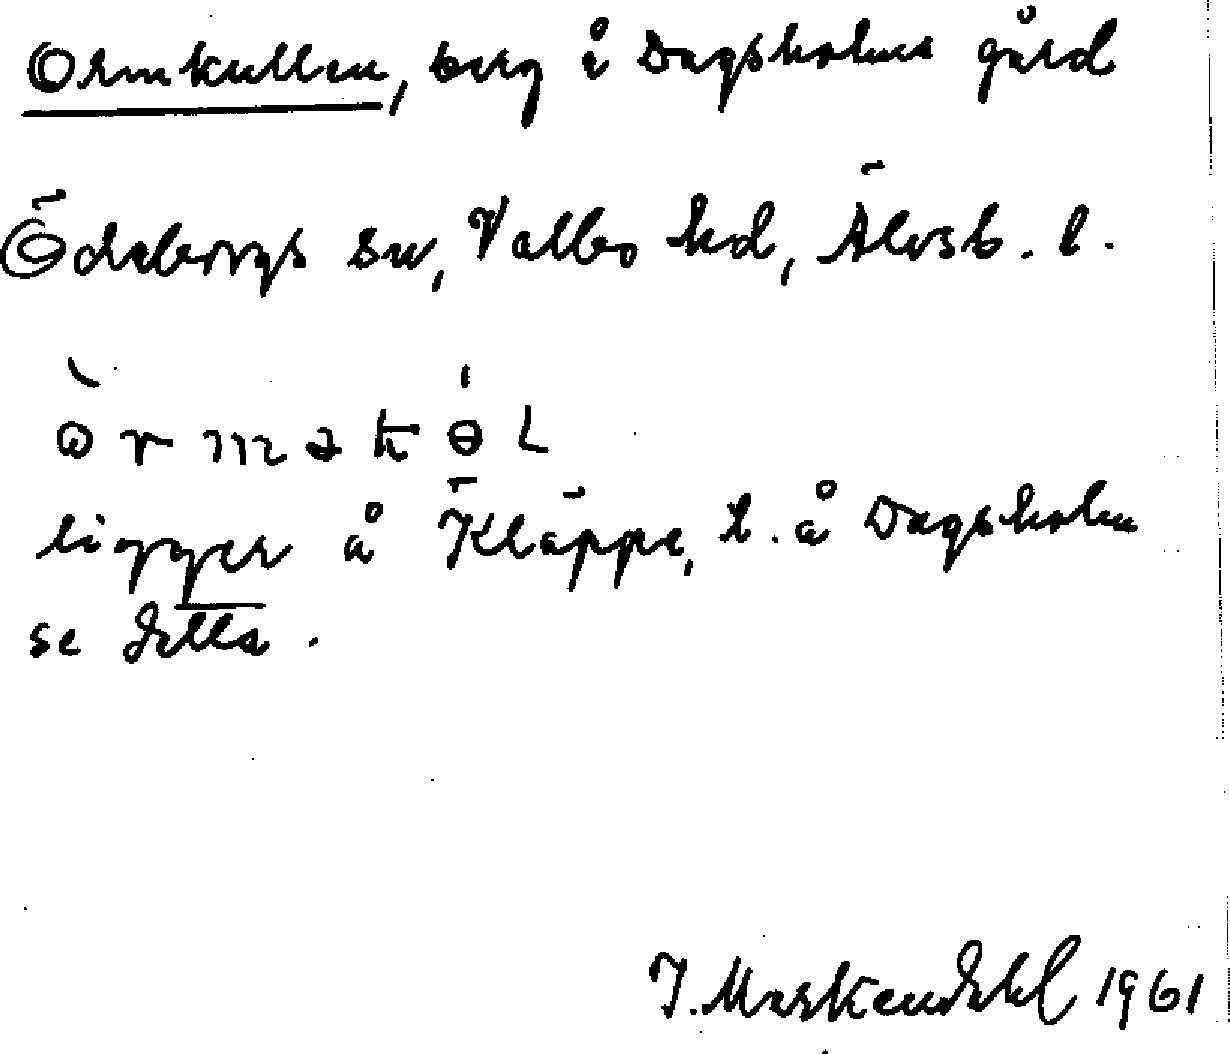 Ormkullen, berg å Dagsholms gård
Ödeborgs sn, Valbo hd, Älvsb. l.
ò̀rməkɵ́L
ligger å Kläppe, t. å Dagsholm
se detta.
J. Markendahl 1961